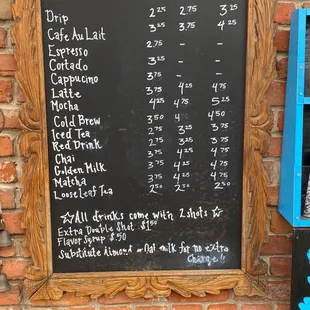 Drip 2²⁵ 2⁷⁵ 3²⁵
Cafe Au Lait 3²⁵ 3⁷⁵ 4²⁵
Espresso 2⁷⁵ - -
Cortado 3²⁵ - -
Cappucino 3⁷⁵ - -
Latte 3⁷⁵ 4²⁵ 4⁷⁵
Mocha 4²⁵ 4⁷⁵ 5²⁵
Cold Brew 3⁵⁰ 4 4⁵⁰
Iced Tea 2⁷⁵ 3²⁵ 3⁷⁵
Red Drink 2⁷⁵ 3²⁵ 3⁷⁵
Chai 3⁷⁵ 4²⁵ 4⁷⁵
Golden Milk 3⁷⁵ 4²⁵ 4⁷⁵
Matcha 3⁷⁵ 4²⁵ 4⁷⁵
Loose Leaf Tea 2⁵⁰ 2⁵⁰ 2⁵⁰
☆All drinks come with 2 shots☆
Extra Double Shot $1⁵⁰
Flavor Syrup $.50
Substitute Almond Oat milk for no extra
Charge!!